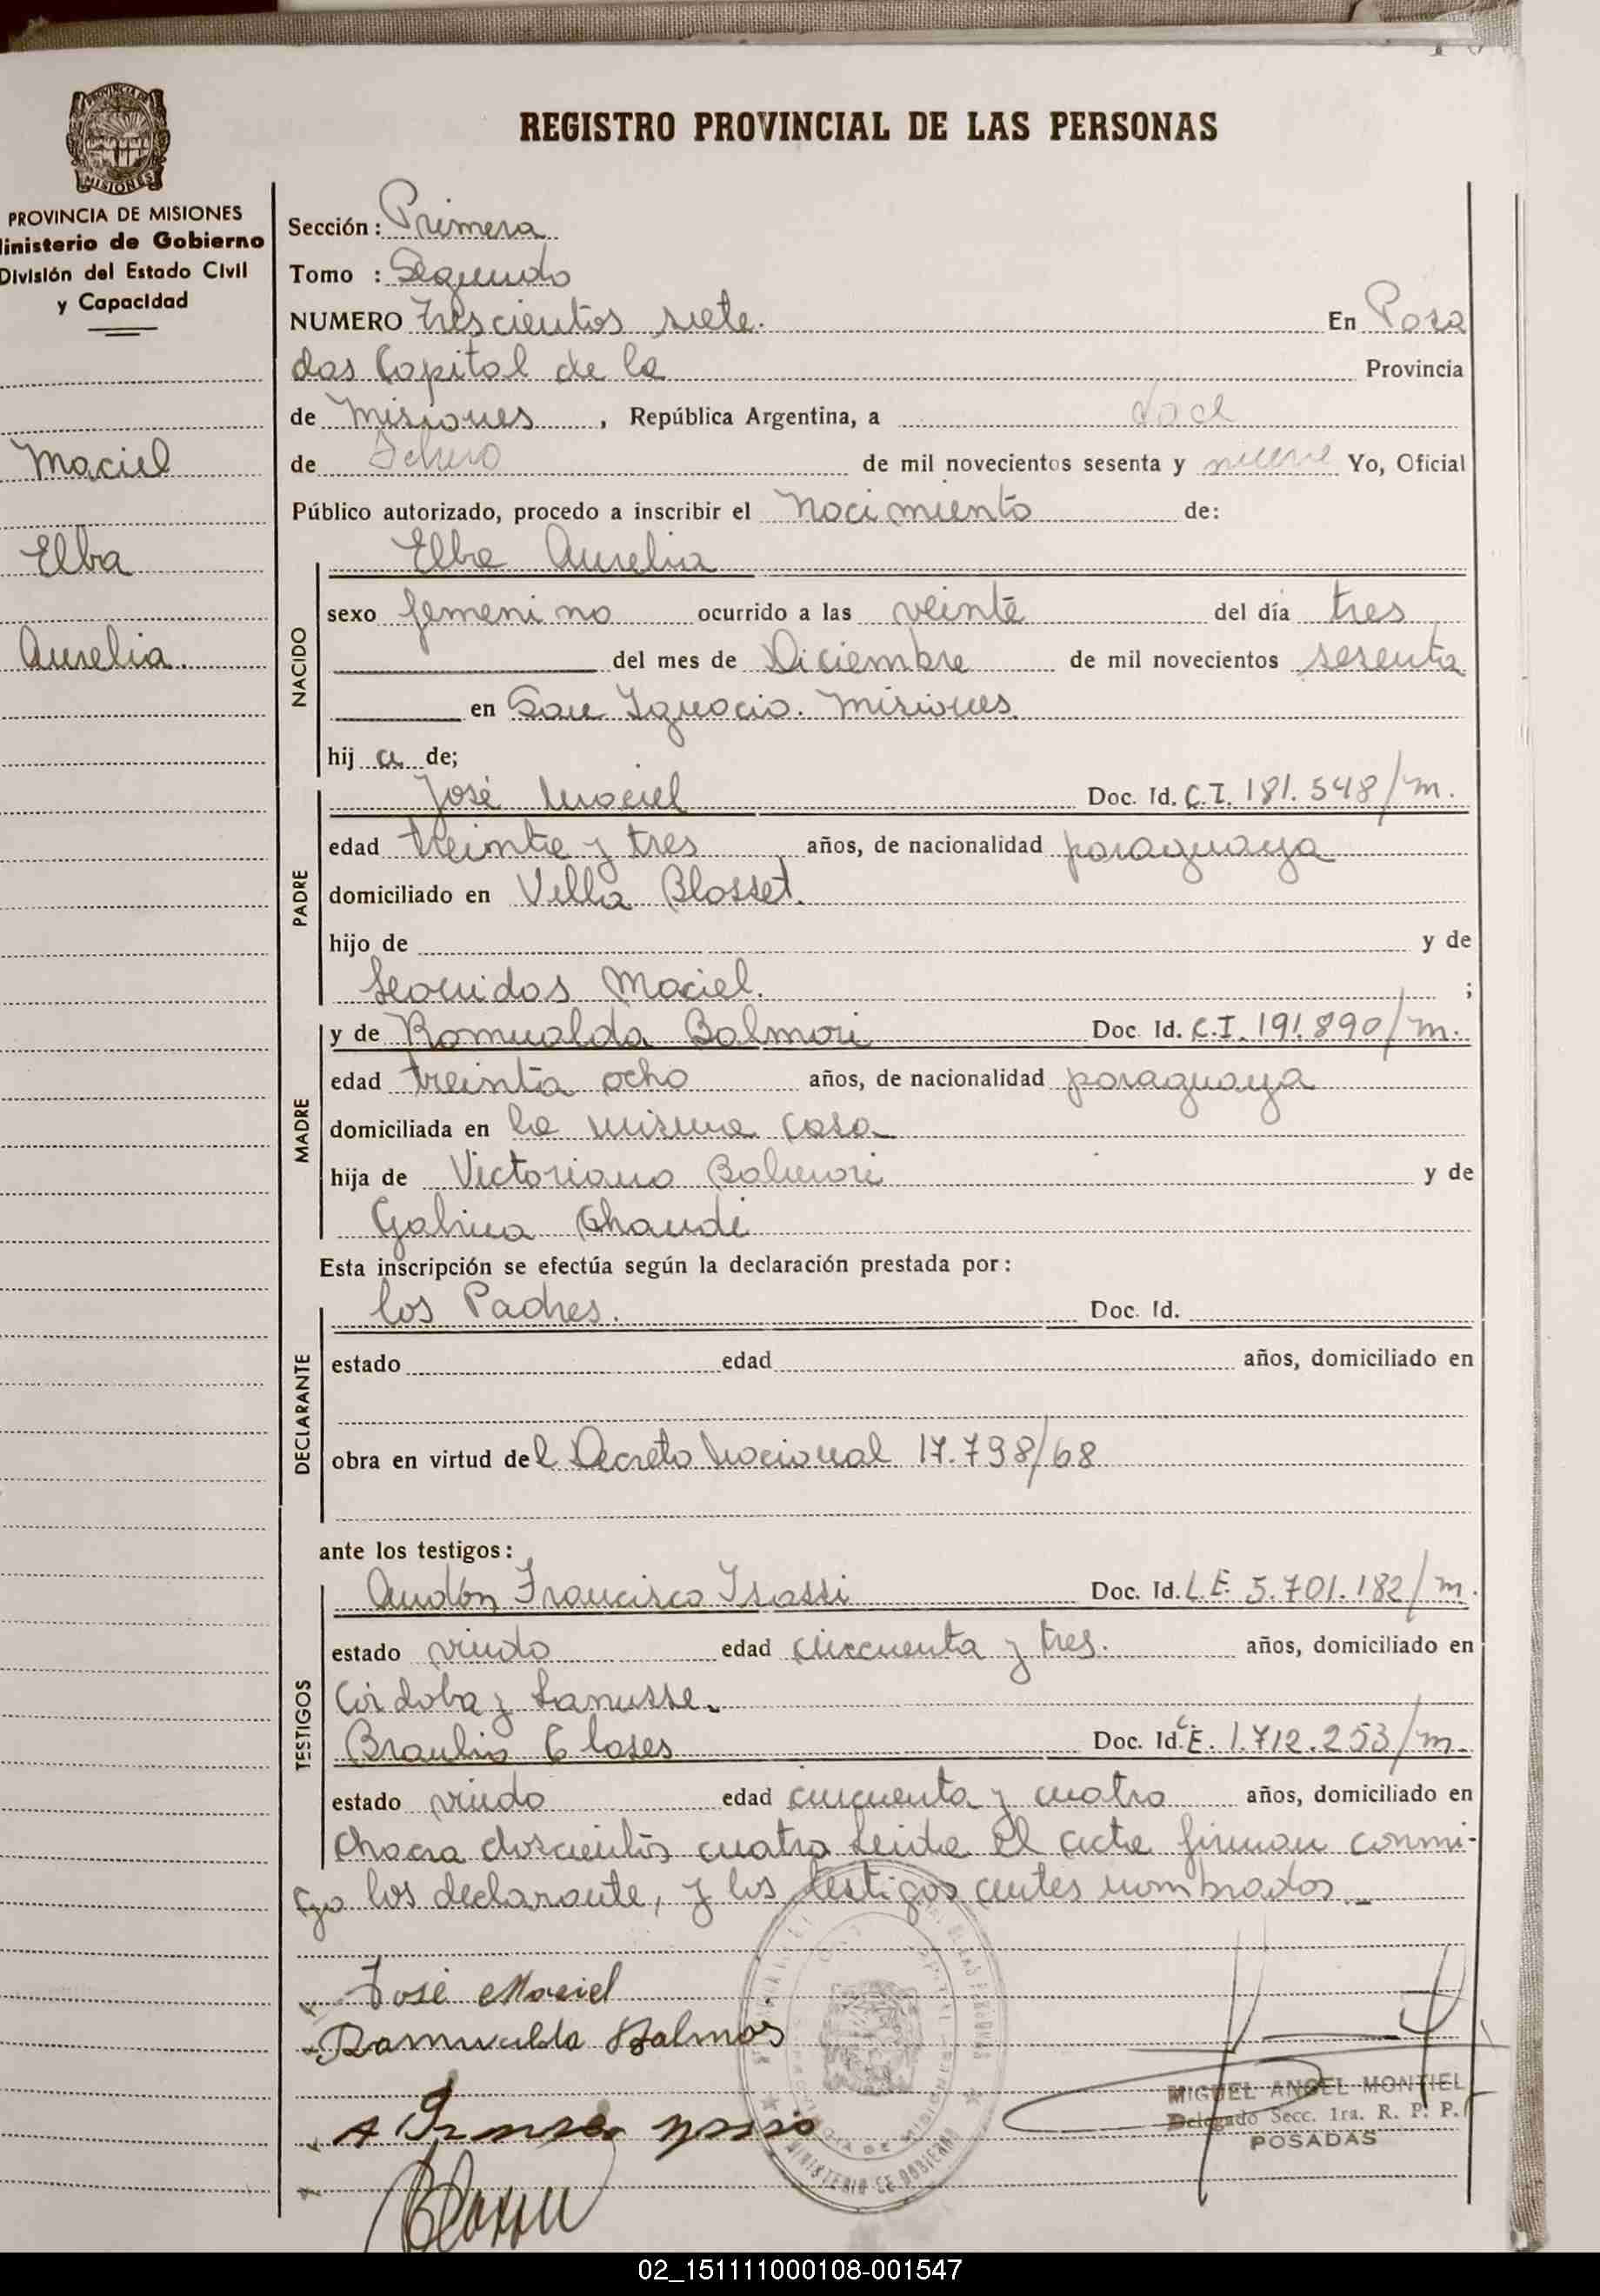 REGISTRO PROVINCIAL DE LAS PERSONAS
PROVINCIA DE MISIONES
MISIONES
PROVINCIA DE MISIONES
Ministerio de Gobierno
División del Estado Civil
y Capacidad
Maciel
Elba
Aurelia.
Sección: Primera
Tomo : Segundo
NUMERO trescientos siete. En Posa
das Capital de la Provincia
de Misiones, República Argentina, a doce
de de mil novecientos sesenta y nueve Yo, Oficial
Público autorizado, procedo a inscribir el Nacimiento de:
Elba Aurelia
NACIDO
sexo femenino ocurrido a las veinte del día tres
del mes de Diciembre de mil novecientos sesenta
en San Ignacio. Misiones.
hij a de;
PADRE
José Maciel Doc. Id. C.I. 181.548/m.
edad treinta y tres años, de nacionalidad paraguaya
domiciliado en Villa Blosset.
hijo de y de
Maciel. ;
MADRE
y de Romualda Balmori Doc. Id. C.I. 191.890/m.
edad treinta ocho años, de nacionalidad paraguaya
domiciliada en la misma casa
hija de Victoriano Balmori y de
Gabina
Esta inscripción se efectúa según la declaración prestada por:
DECLARANTE
los Padres. Doc. Id.
estado edad años, domiciliado en
obra en virtud del Decreto Nacional 17.798/68
ante los testigos:
TESTIGOS
Audón Francisco Isassi Doc. Id. L.E. 5.701.182/m.
estado viudo edad cincuenta y tres. años, domiciliado en
Córdoba y Lanusse.
Braulio Closes Doc. Id. E. 1.712.253/m.
estado viudo edad cincuenta y cuatro años, domiciliado en
Chacra doscientos cuatro Leida el acta firman conmi-
go los declarante, y los testigos antes nombrados.
José Maciel
Ramualda
MIGUEL ANGEL MONTIEL
Delegado Secc. 1ra. R. P. P.
POSADAS
MINISTERIO DE GOBIERNO
02_151111000108-001547